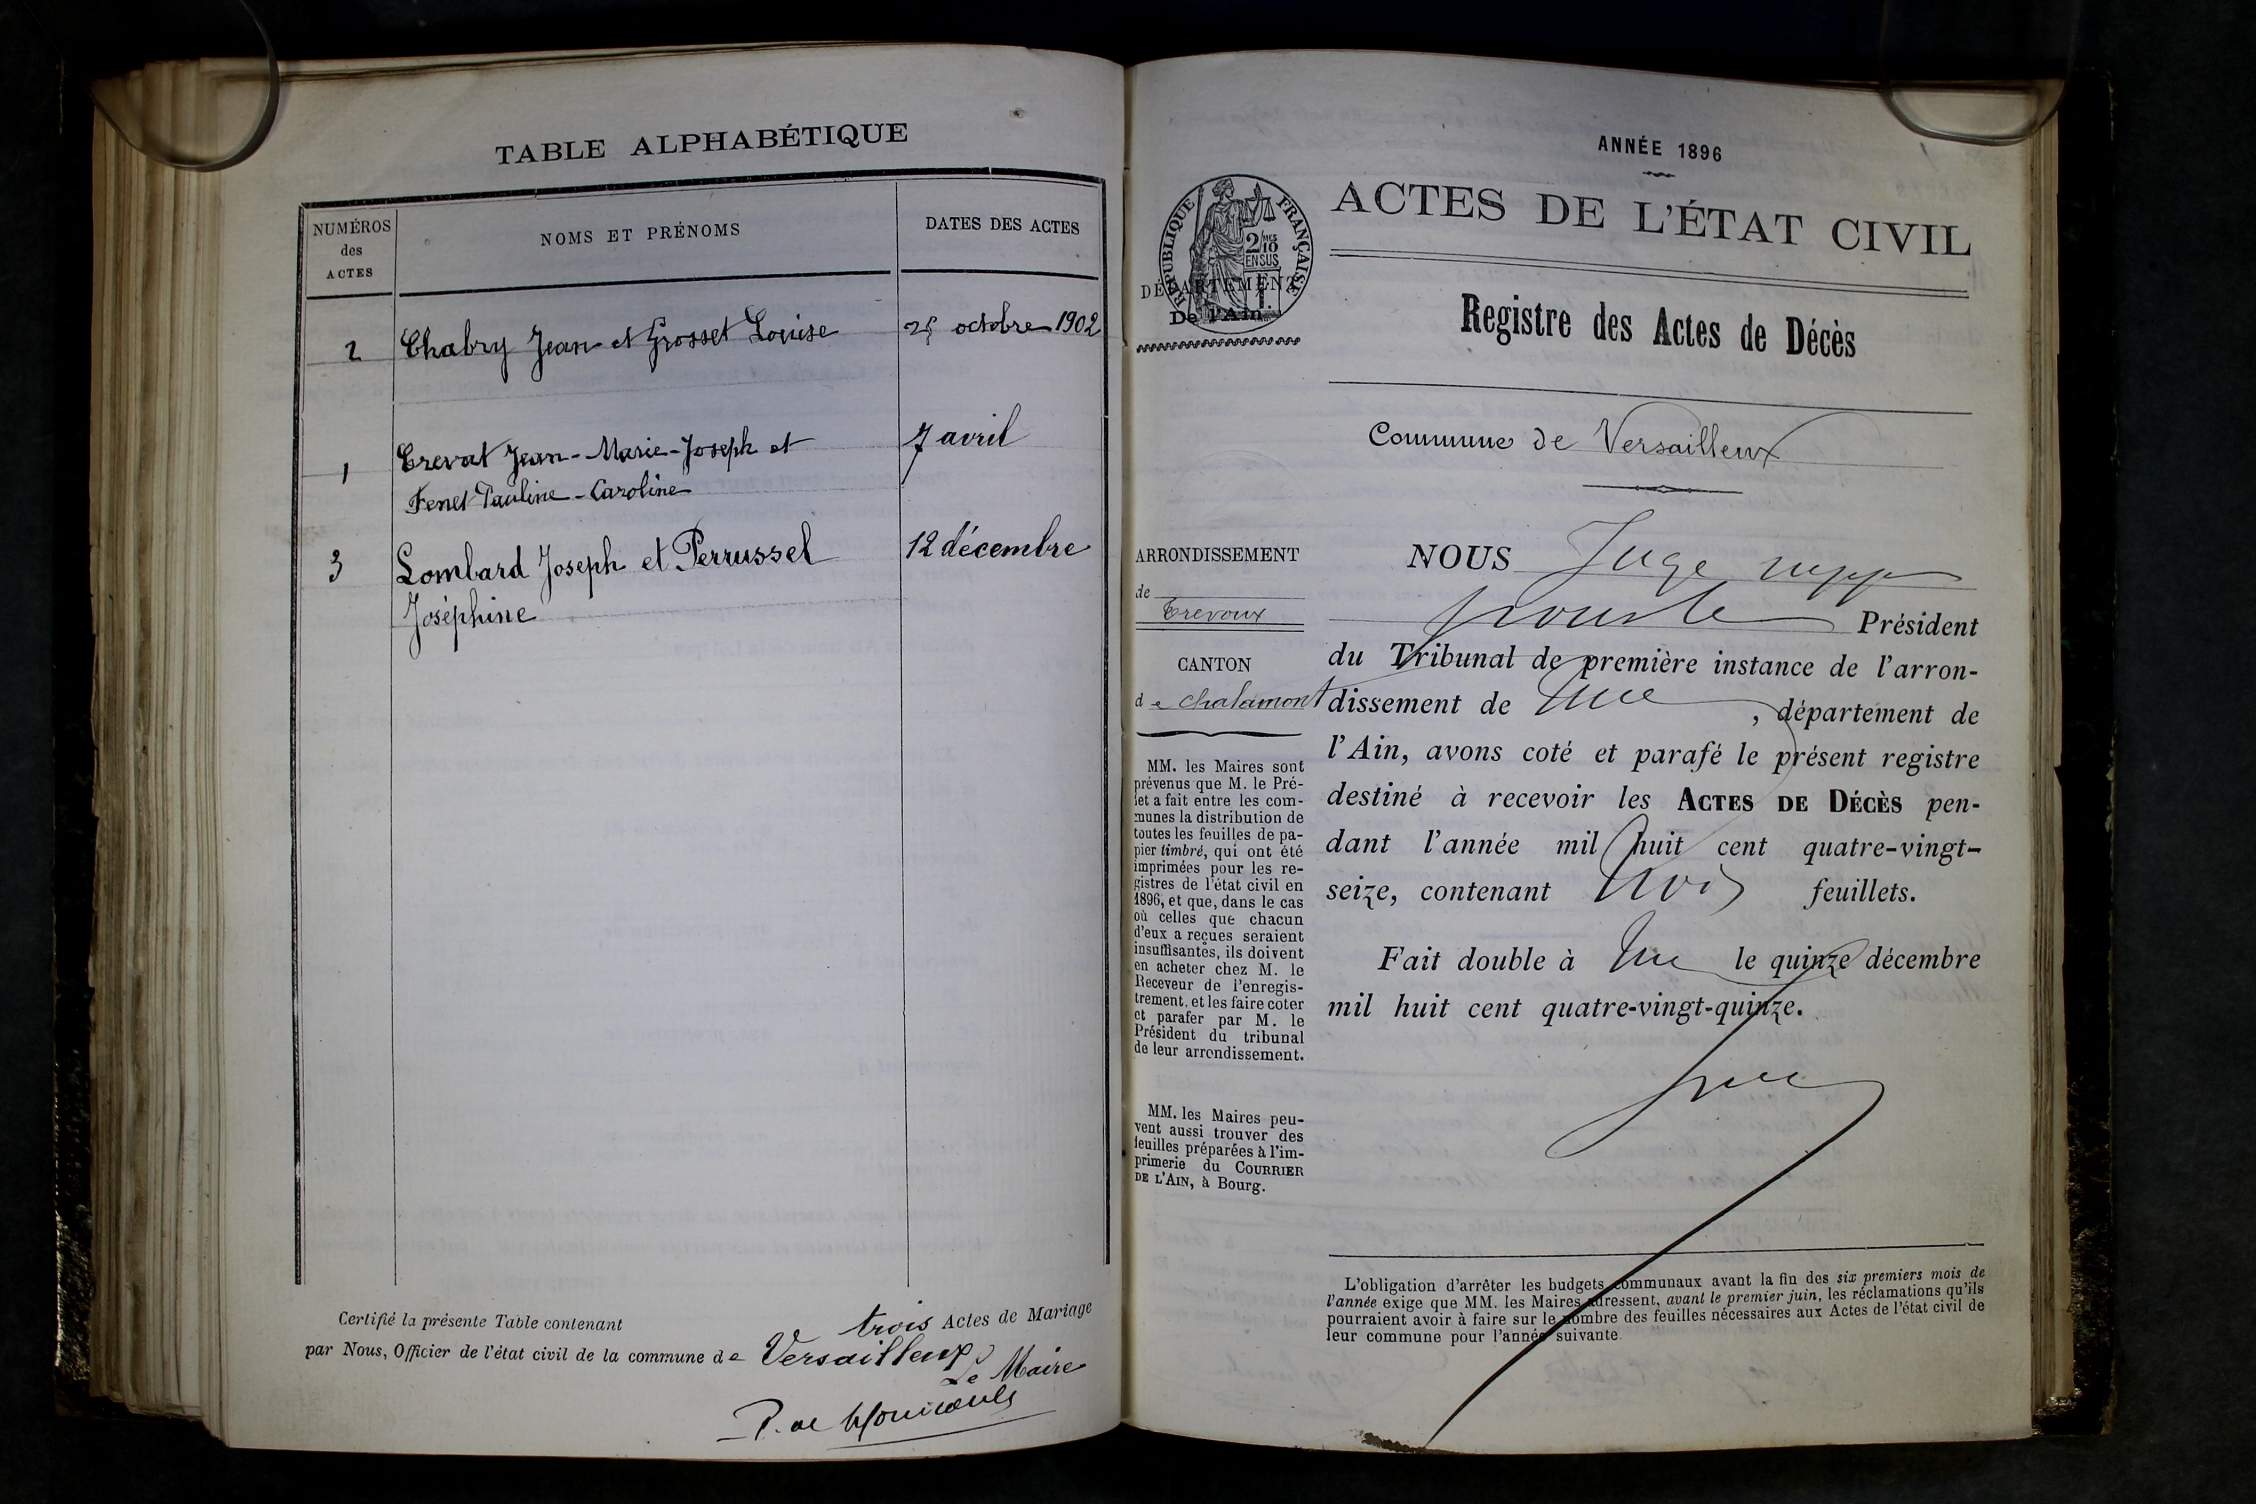 TABLE ALPHABÉTIQUE
NUMÉROS
des
ACTES
NOMS ET PRÉNOMS
DATES DES ACTES
2 Chabry Jean et Grosset Louise 25 octobre 1902
1 Crevat Jean-Marie-Joseph et 7 avril
Fenet Pauline-Caroline
3 Lombard Joseph et Perrussel 12 décembre
Joséphine
Certifié la présente Table contenant trois Actes de Mariage
par Nous, Officier de l'état civil de la commune de Versailleux
Le Maire
P. de Monicault
ANNÉE 1896
ACTES DE L'ÉTAT CIVIL
RÉPUBLIQUE FRANÇAISE
2/10 MES
EN SUS
DÉPARTEMENT
De l'Ain
Registre des Actes de Décès
Commune de Versailleux
ARRONDISSEMENT
de
Trevoux
CANTON
de Chalamont
MM. les Maires sont
prévenus que M. le Pré-
fet a fait entre les com-
munes la distribution de
toutes les feuilles de pa-
pier timbré, qui ont été
imprimées pour les re-
gistres de l'état civil en
1896, et que, dans le cas
où celles que chacun
d'eux a reçues seraient
insuffisantes, ils doivent
en acheter chez M. le
Receveur de l'enregis-
trement, et les faire coter
et parafer par M. le
Président du tribunal
de leur arrondissement.
MM. les Maires peu-
vent aussi trouver des
feuilles préparées à l'im-
primerie du COURRIER
DE L'AIN, à Bourg.
NOUS Juge supp
pour le Président
du Tribunal de première instance de l'arron-
dissement de , département de
l'Ain, avons coté et parafé le présent registre
destiné à recevoir les ACTES DE DÉCÈS pen-
dant l'année mil huit cent quatre-vingt-
seize, contenant trois feuillets.
Fait double à le quinze décembre
mil huit cent quatre-vingt-quinze.
L'obligation d'arrêter les budgets communaux avant la fin des six premiers mois de
l'année exige que MM. les Maires adressent, avant le premier juin, les réclamations qu'ils
pourraient avoir à faire sur le nombre des feuilles nécessaires aux Actes de l'état civil de
leur commune pour l'année suivante.